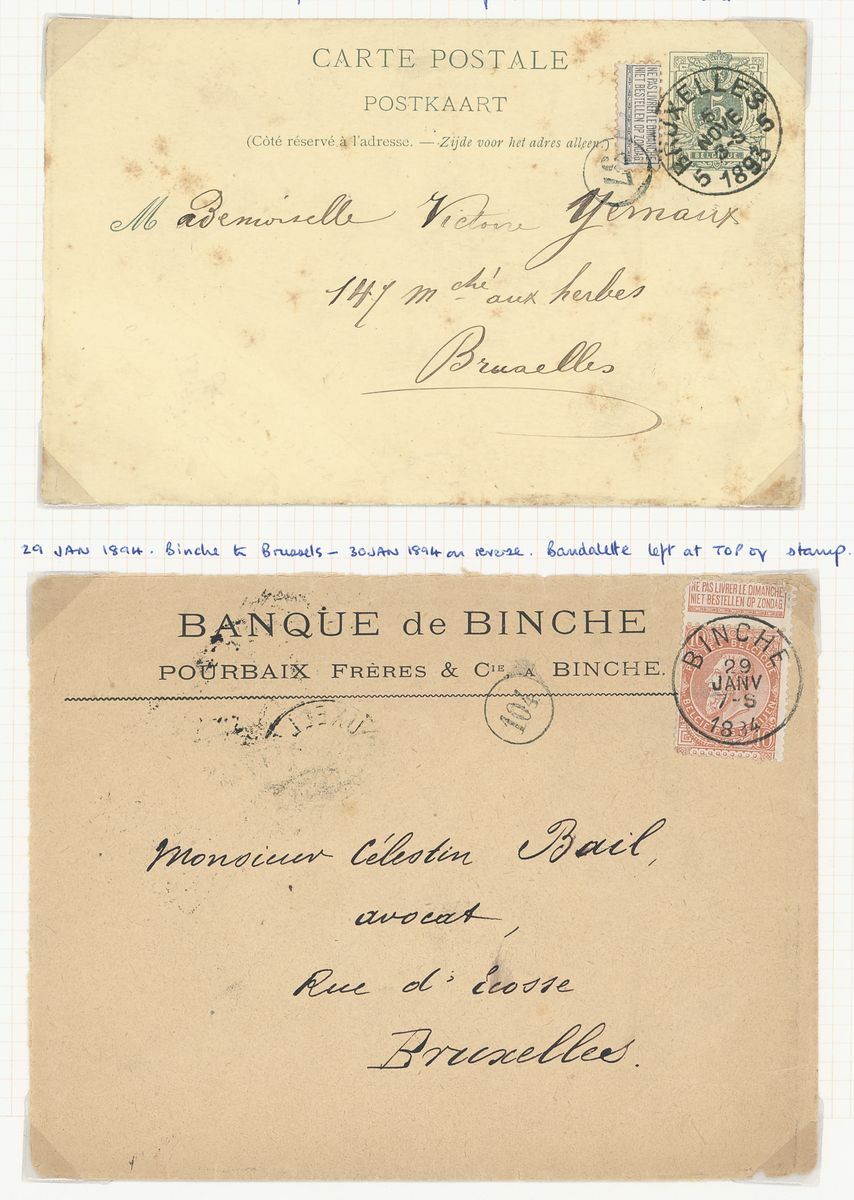 CARTE POSTALE
POSTKAART
(Côté réservé à l'adresse. — Zijde voor het adres alleen.)
NE PAS LIVRER LE DIMANCHE
NIET BESTELLEN OP ZONDAG
5
BELGIQUE
BRUXELLES 5
5
NOVE
3-S
1893
37
Mademoiselle Victoire Yernaux
147 mché aux herbes
Bruxelles
29 JAN 1894. Binche to Brussels – 30 JAN 1894 on reverse. Bandalette left at TOP of stamp.
BANQUE de BINCHE
POURBAIX FRÈRES & CIE A BINCHE.
NE PAS LIVRER LE DIMANCHE
NIET BESTELLEN OP ZONDAG
BINCHE
29
JANV
7-S
1894
10
104
Monsieur Célestin Bail,
avocat,
Rue d'Ecosse
Bruxelles.